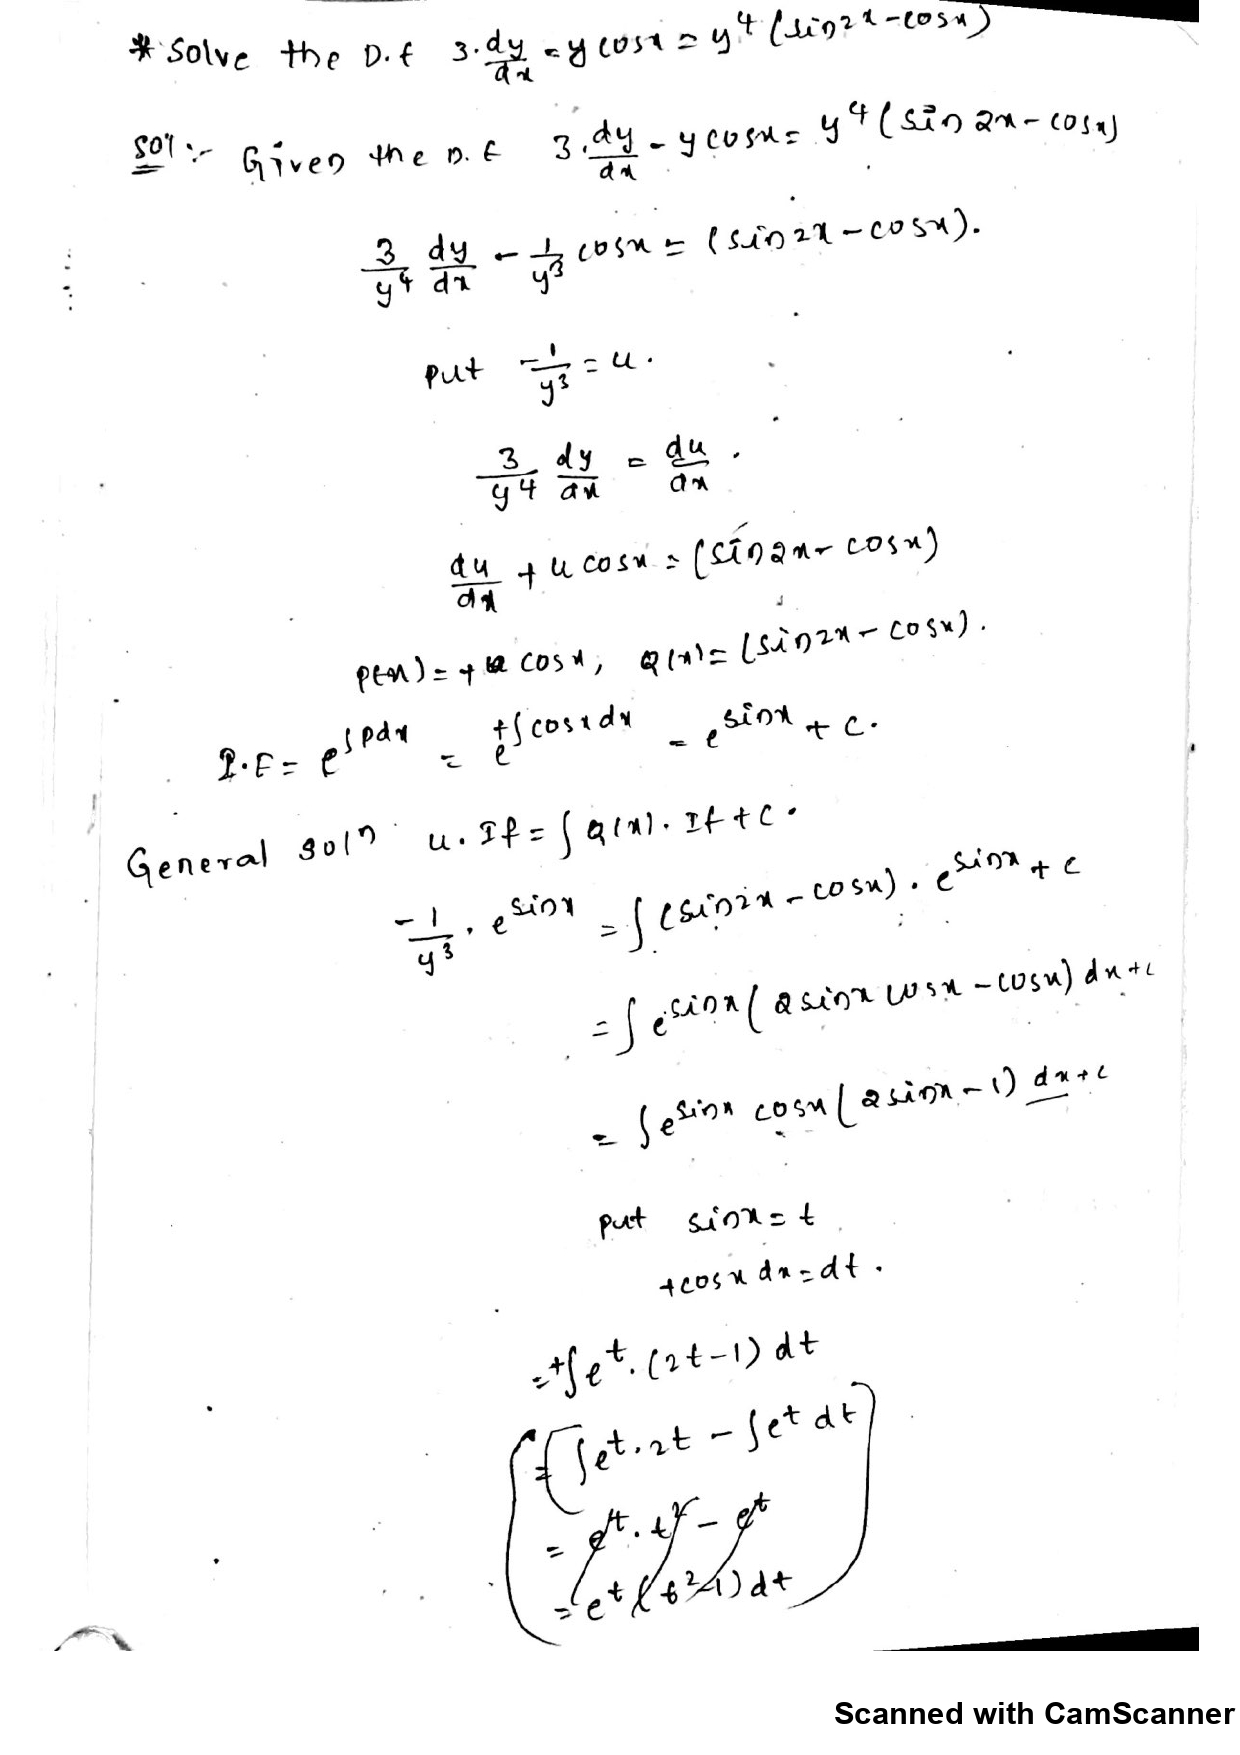 * Solve the D.E 3.dy/dx - y cosx = y⁴ (sin2x-cosx)
Sol :- Given the D.E 3.dy/dx - y cosx = y⁴ (sin 2x - cosx)
3/y⁴ dy/dx - 1/y³ cosx = (sin 2x - cosx).
put -1/y³ = u.
3/y⁴ dy/dx = du/dx.
du/dx + u cosx = (sin2x - cosx)
P(x) = + cosx, Q(x) = (sin2x - cosx).
I.F = e^∫Pdx = e^+∫cosxdx = e^sinx + c.
General soln u. If = ∫ Q(x). If + c.
-1/y³ . e^sinx = ∫ (sin2x - cosx) . e^sinx + c
= ∫ e^sinx ( 2 sinx cosx - cosx) dx + c
= ∫ e^sinx cosx ( 2 sinx - 1) dx + c
put sinx = t
+cosx dx = dt.
= +∫ e^t. (2t-1) dt
= ∫ e^t. 2t - ∫ e^t dt
= e^t. t² - e^t
= e^t (t²-1) dt
Scanned with CamScanner